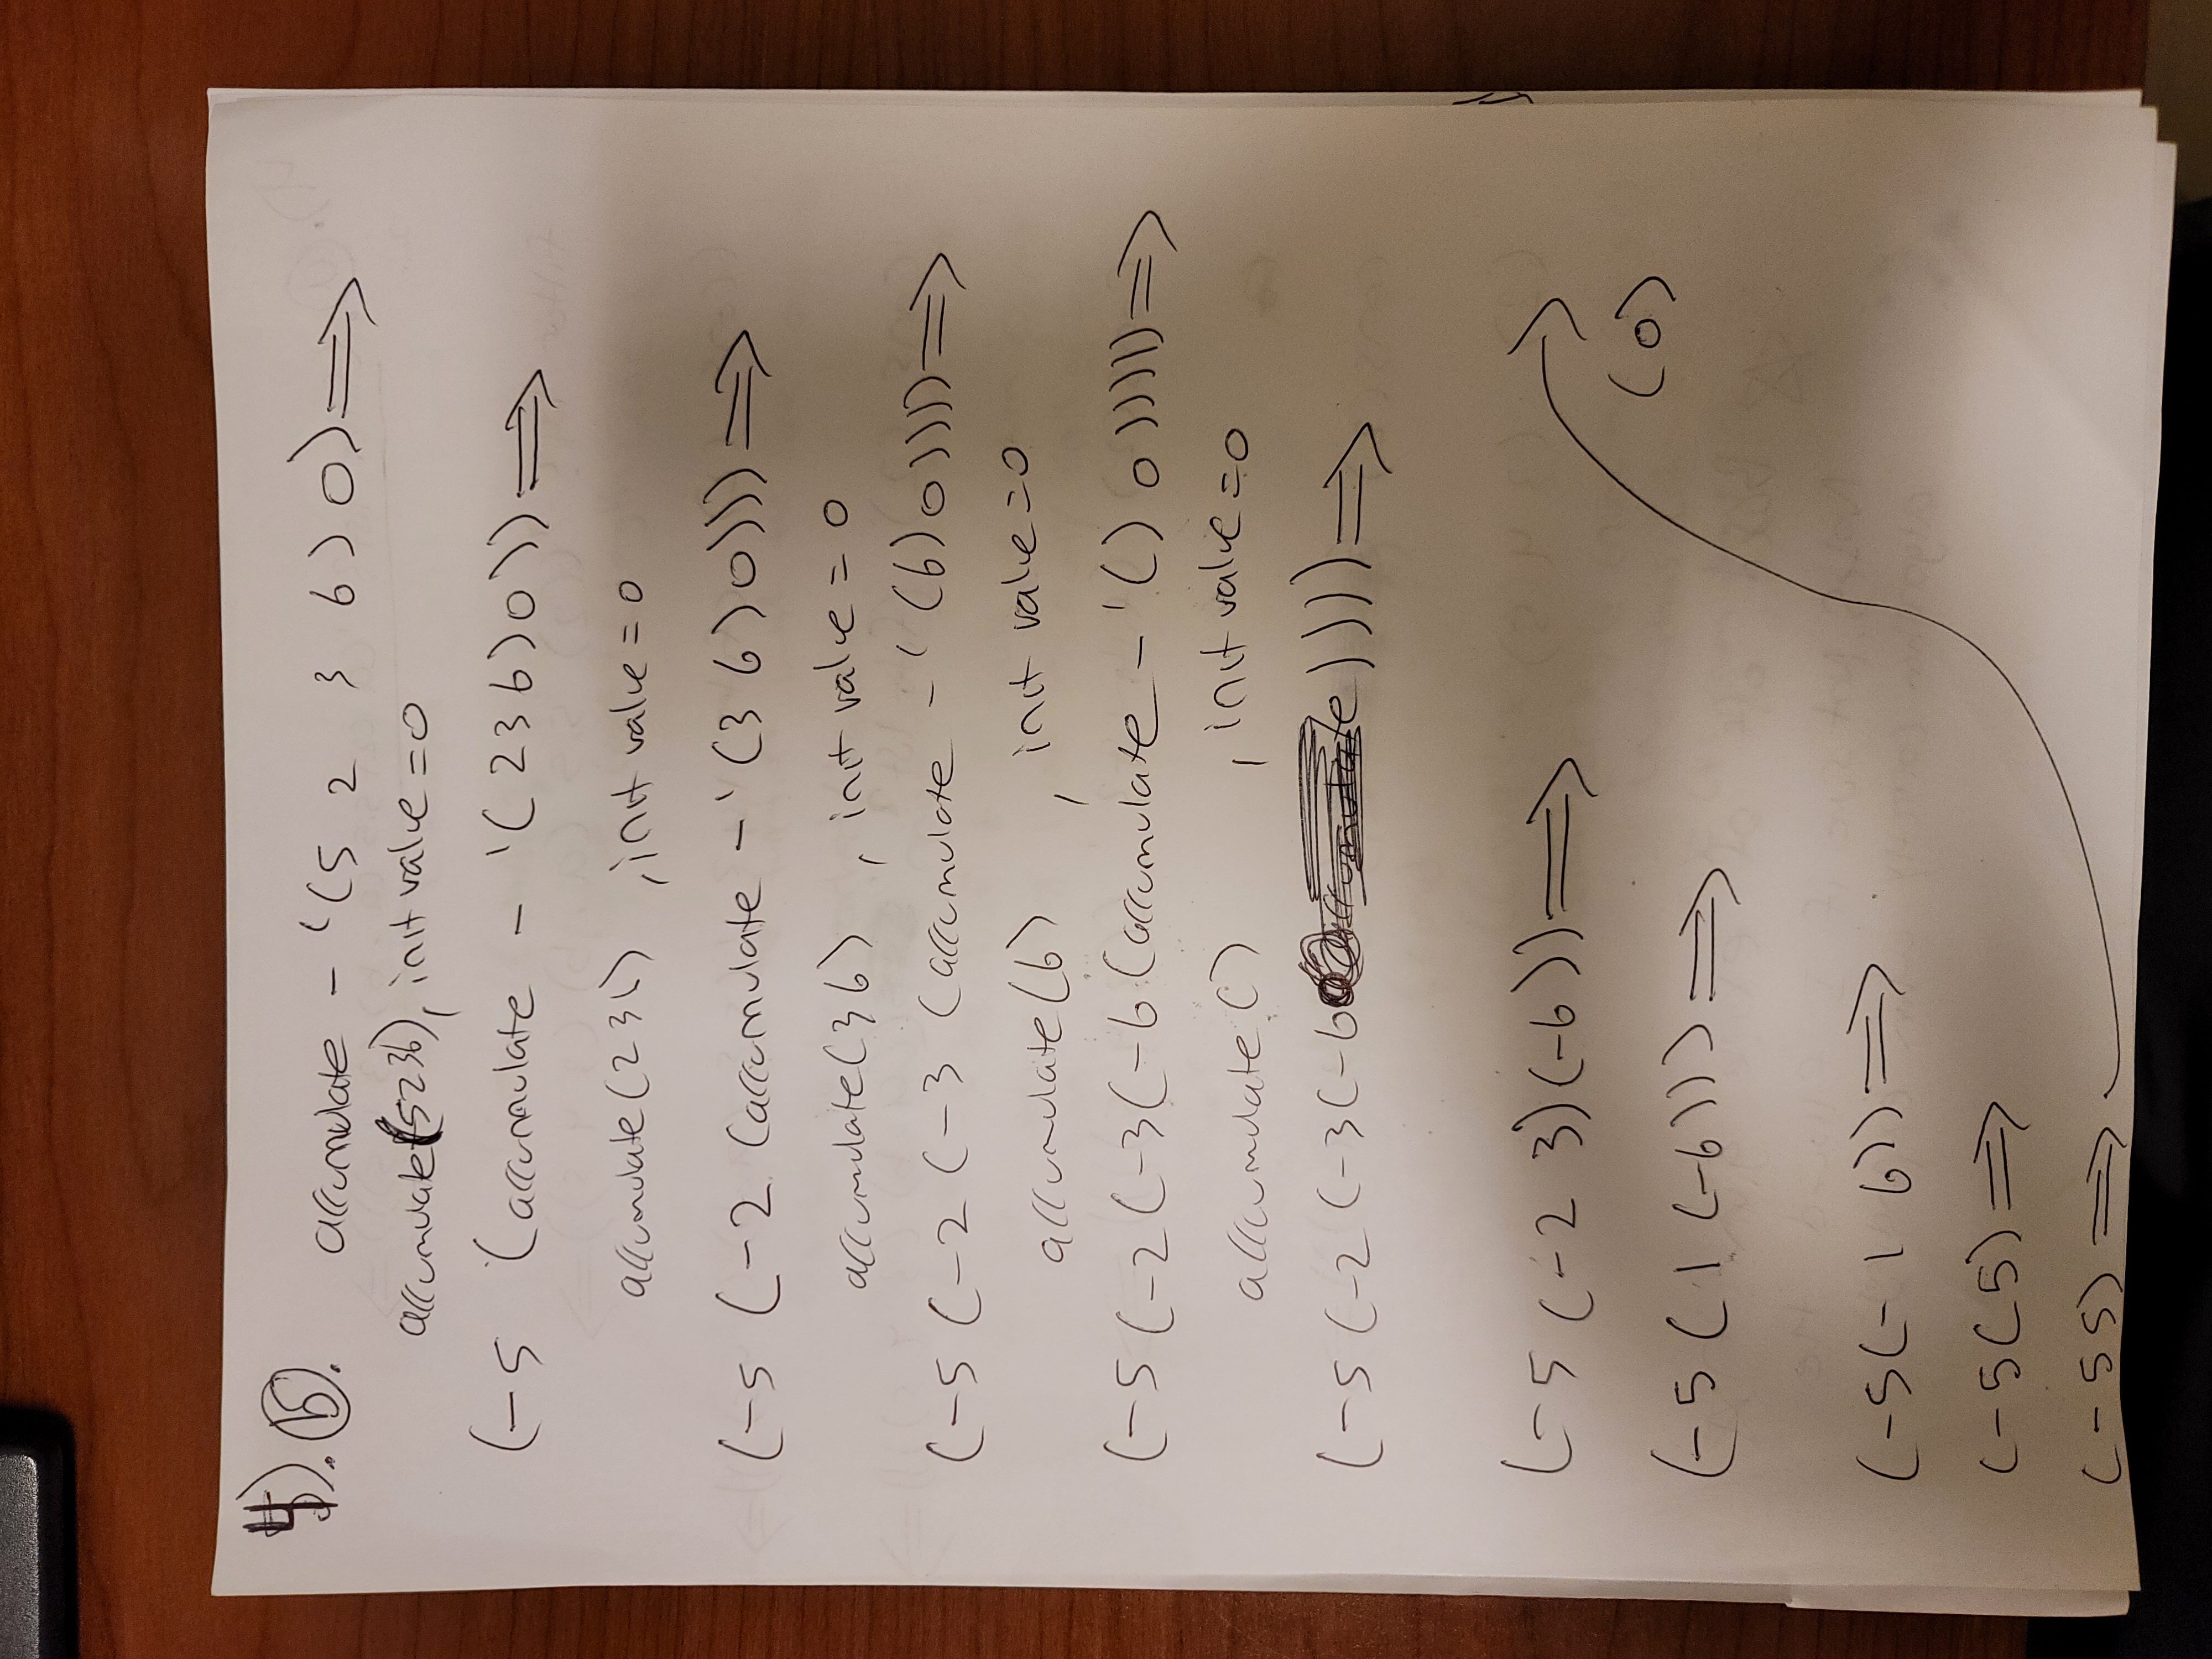 4). b.
accumulate - '(5 2 3 6) 0) ⟹
accumulate(5236), init value = 0
(-5 (accumulate - '(236)0)) ⟹
accumulate(236) , init value = 0
(-5 (-2 (accumulate - '(3 6)0))) ⟹
accumulate(36) , init value = 0
(-5 (-2 (-3 (accumulate - '(6)0)))) ⟹
accumulate(6) , init value = 0
(-5 (-2 (-3 (-6 (accumulate - '() 0))))) ⟹
accumulate () , init value = 0
(-5 (-2 (-3 (-6 )))) ⟹
(-5 (-2 3)(-6)) ⟹
(-5 (1 (-6))) ⟹
(-5(-1 6)) ⟹
(-5(5) ⟹
(-55) ⟹
(0)